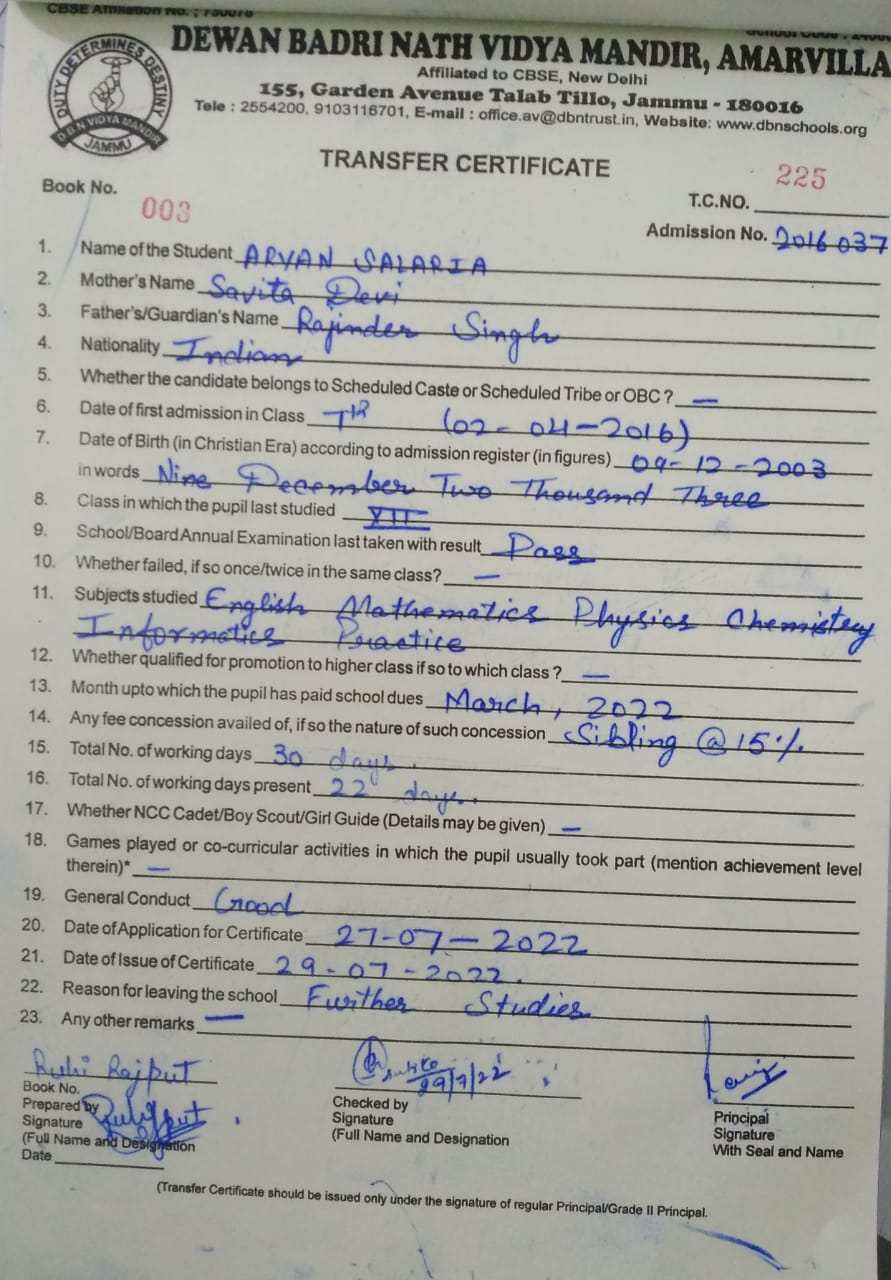 CBSE Affiliation No. : 730078
DUTY DETERMINES DESTINY
D.B.N VIDYA MANDIR
JAMMU
DEWAN BADRI NATH VIDYA MANDIR, AMARVILLA
Affiliated to CBSE, New Delhi
155, Garden Avenue Talab Tillo, Jammu - 180016
Tele : 2554200, 9103116701, E-mail : office.av@dbntrust.in, Website: www.dbnschools.org
TRANSFER CERTIFICATE
Book No. 003
T.C.NO. 225
Admission No. 2016037
1. Name of the Student ARYAN SALARIA
2. Mother's Name Savita Devi
3. Father's/Guardian's Name Rajinder Singh
4. Nationality Indian
5. Whether the candidate belongs to Scheduled Caste or Scheduled Tribe or OBC ? —
6. Date of first admission in Class (02-04-2016)
7. Date of Birth (in Christian Era) according to admission register (in figures) 09-12-2003
in words Nine December Two Thousand Three
8. Class in which the pupil last studied XII
9. School/Board Annual Examination last taken with result Pass
10. Whether failed, if so once/twice in the same class? —
11. Subjects studied English Mathematics Physics Chemistry
Informatics Practice
12. Whether qualified for promotion to higher class if so to which class ? —
13. Month upto which the pupil has paid school dues March, 2022
14. Any fee concession availed of, if so the nature of such concession Sibling @ 15%
15. Total No. of working days 30 days.
16. Total No. of working days present 22 days.
17. Whether NCC Cadet/Boy Scout/Girl Guide (Details may be given) —
18. Games played or co-curricular activities in which the pupil usually took part (mention achievement level
therein)* —
19. General Conduct Good
20. Date of Application for Certificate 27-07-2022
21. Date of Issue of Certificate 29-07-2022.
22. Reason for leaving the school Further Studies
23. Any other remarks —
Ruhi Rajput
29/7/22
Book No.
Prepared by
Signature
(Full Name and Designation
Date
Checked by
Signature
(Full Name and Designation
Principal
Signature
With Seal and Name
(Transfer Certificate should be issued only under the signature of regular Principal/Grade II Principal.